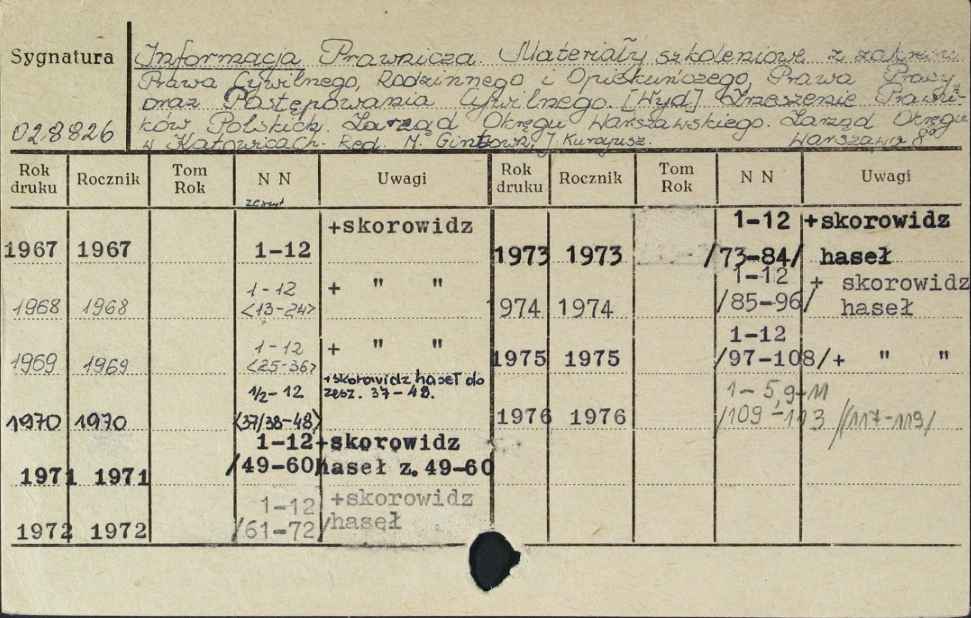 Sygnatura
028826
Informacja Prawnicza. Materiały szkoleniowe z zakresu
Prawa Cywilnego, Rodzinnego i Opiekuńczego, Prawa Pracy
oraz Postępowania Cywilnego. [Wyd.] Zrzeszenie Prawni-
ków Polskich. Zarząd Okręgu Warszawskiego. Zarząd Okręgu
w Katowicach. Red. M. J. Warszawa 8°
Rok druku Rocznik Tom Rok N N Uwagi Rok druku Rocznik Tom Rok N N Uwagi
zeszyt
1967 1967 1-12 +skorowidz
1968 1968 1-12 <13-24> + " "
1969 1969 1-12 <25-36> + " "
1970 1970 1/2-12 <37/38-48> +skorowidz haseł do zesz. 37-48.
1971 1971 1-12 /49-60/ +skorowidz haseł z. 49-60
1972 1972 1-12 /61-72/ +skorowidz haseł
1973 1973 1-12 /73-84/ +skorowidz haseł
1974 1974 1-12 /85-96/ + skorowidz haseł
1975 1975 1-12 /97-108/ + " "
1976 1976 1-5,9-11 /109-113 /117-119/